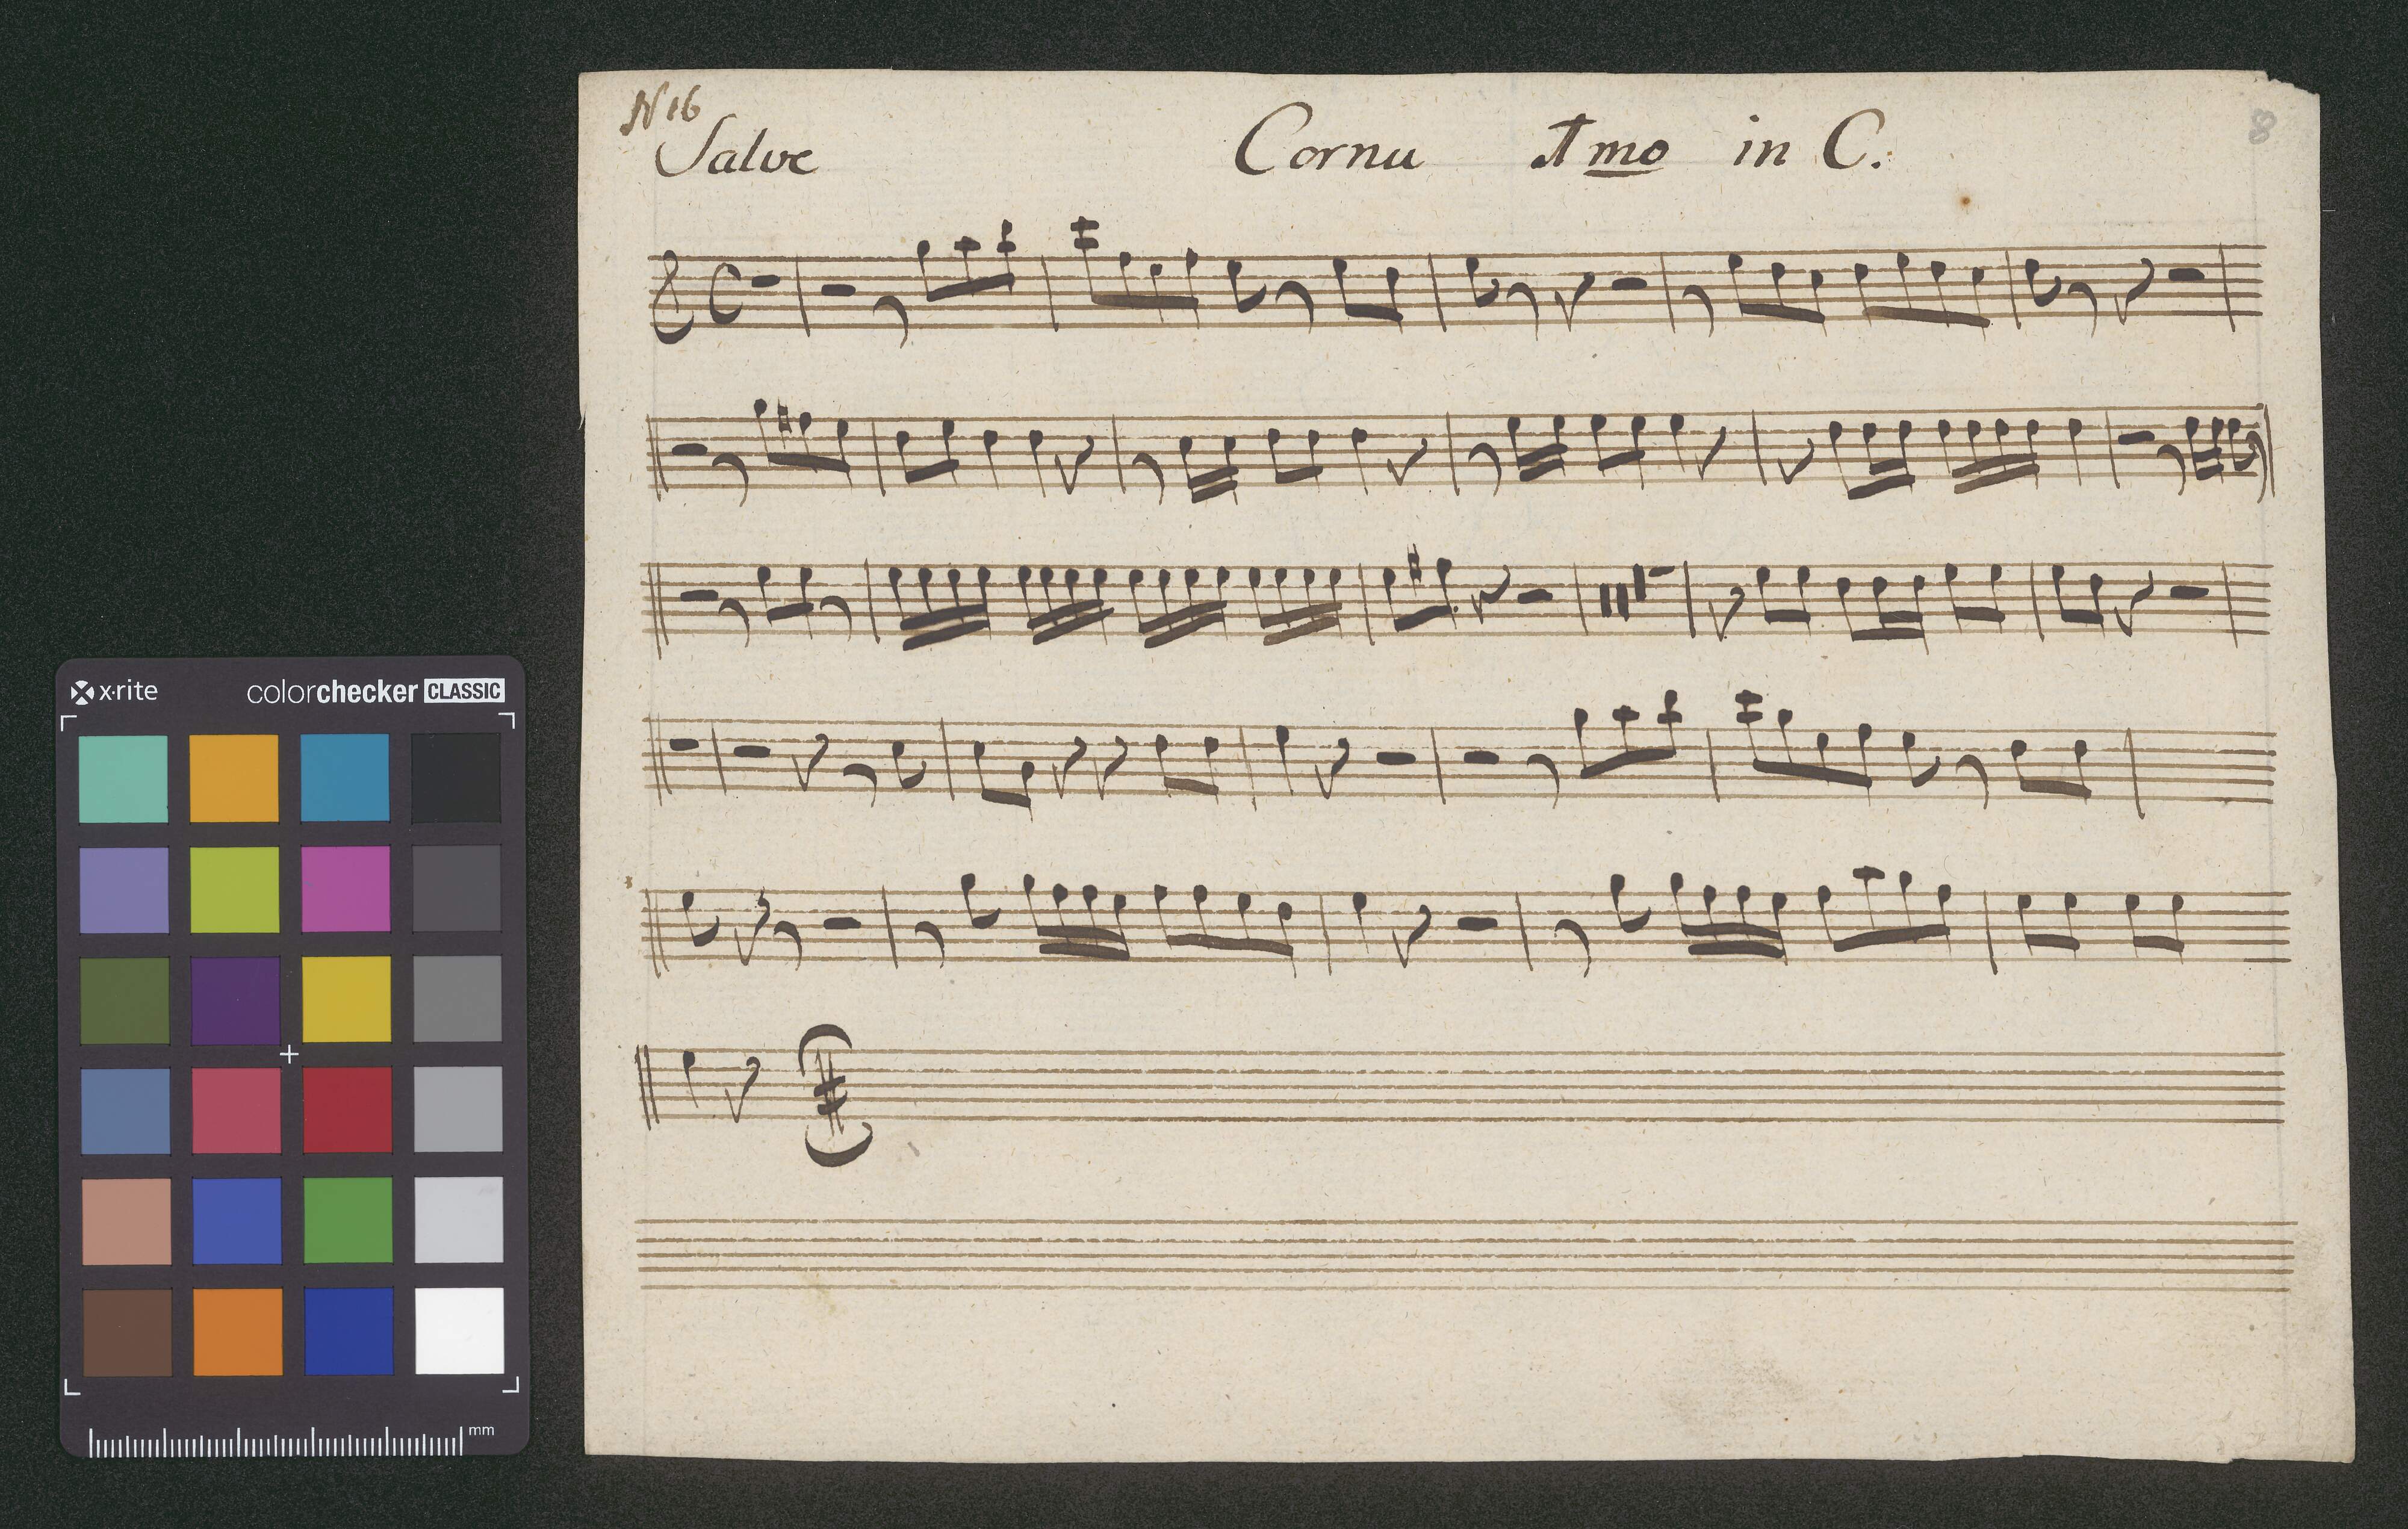 N 16
Salve Cornu Imo in C.
8
x·rite colorchecker CLASSIC
mm